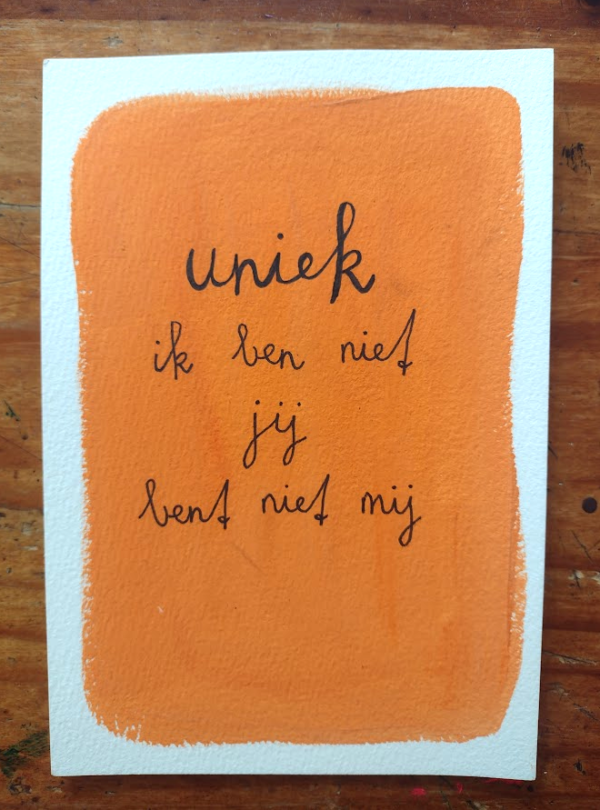 uniek
ik ben niet
jij
bent niet mij